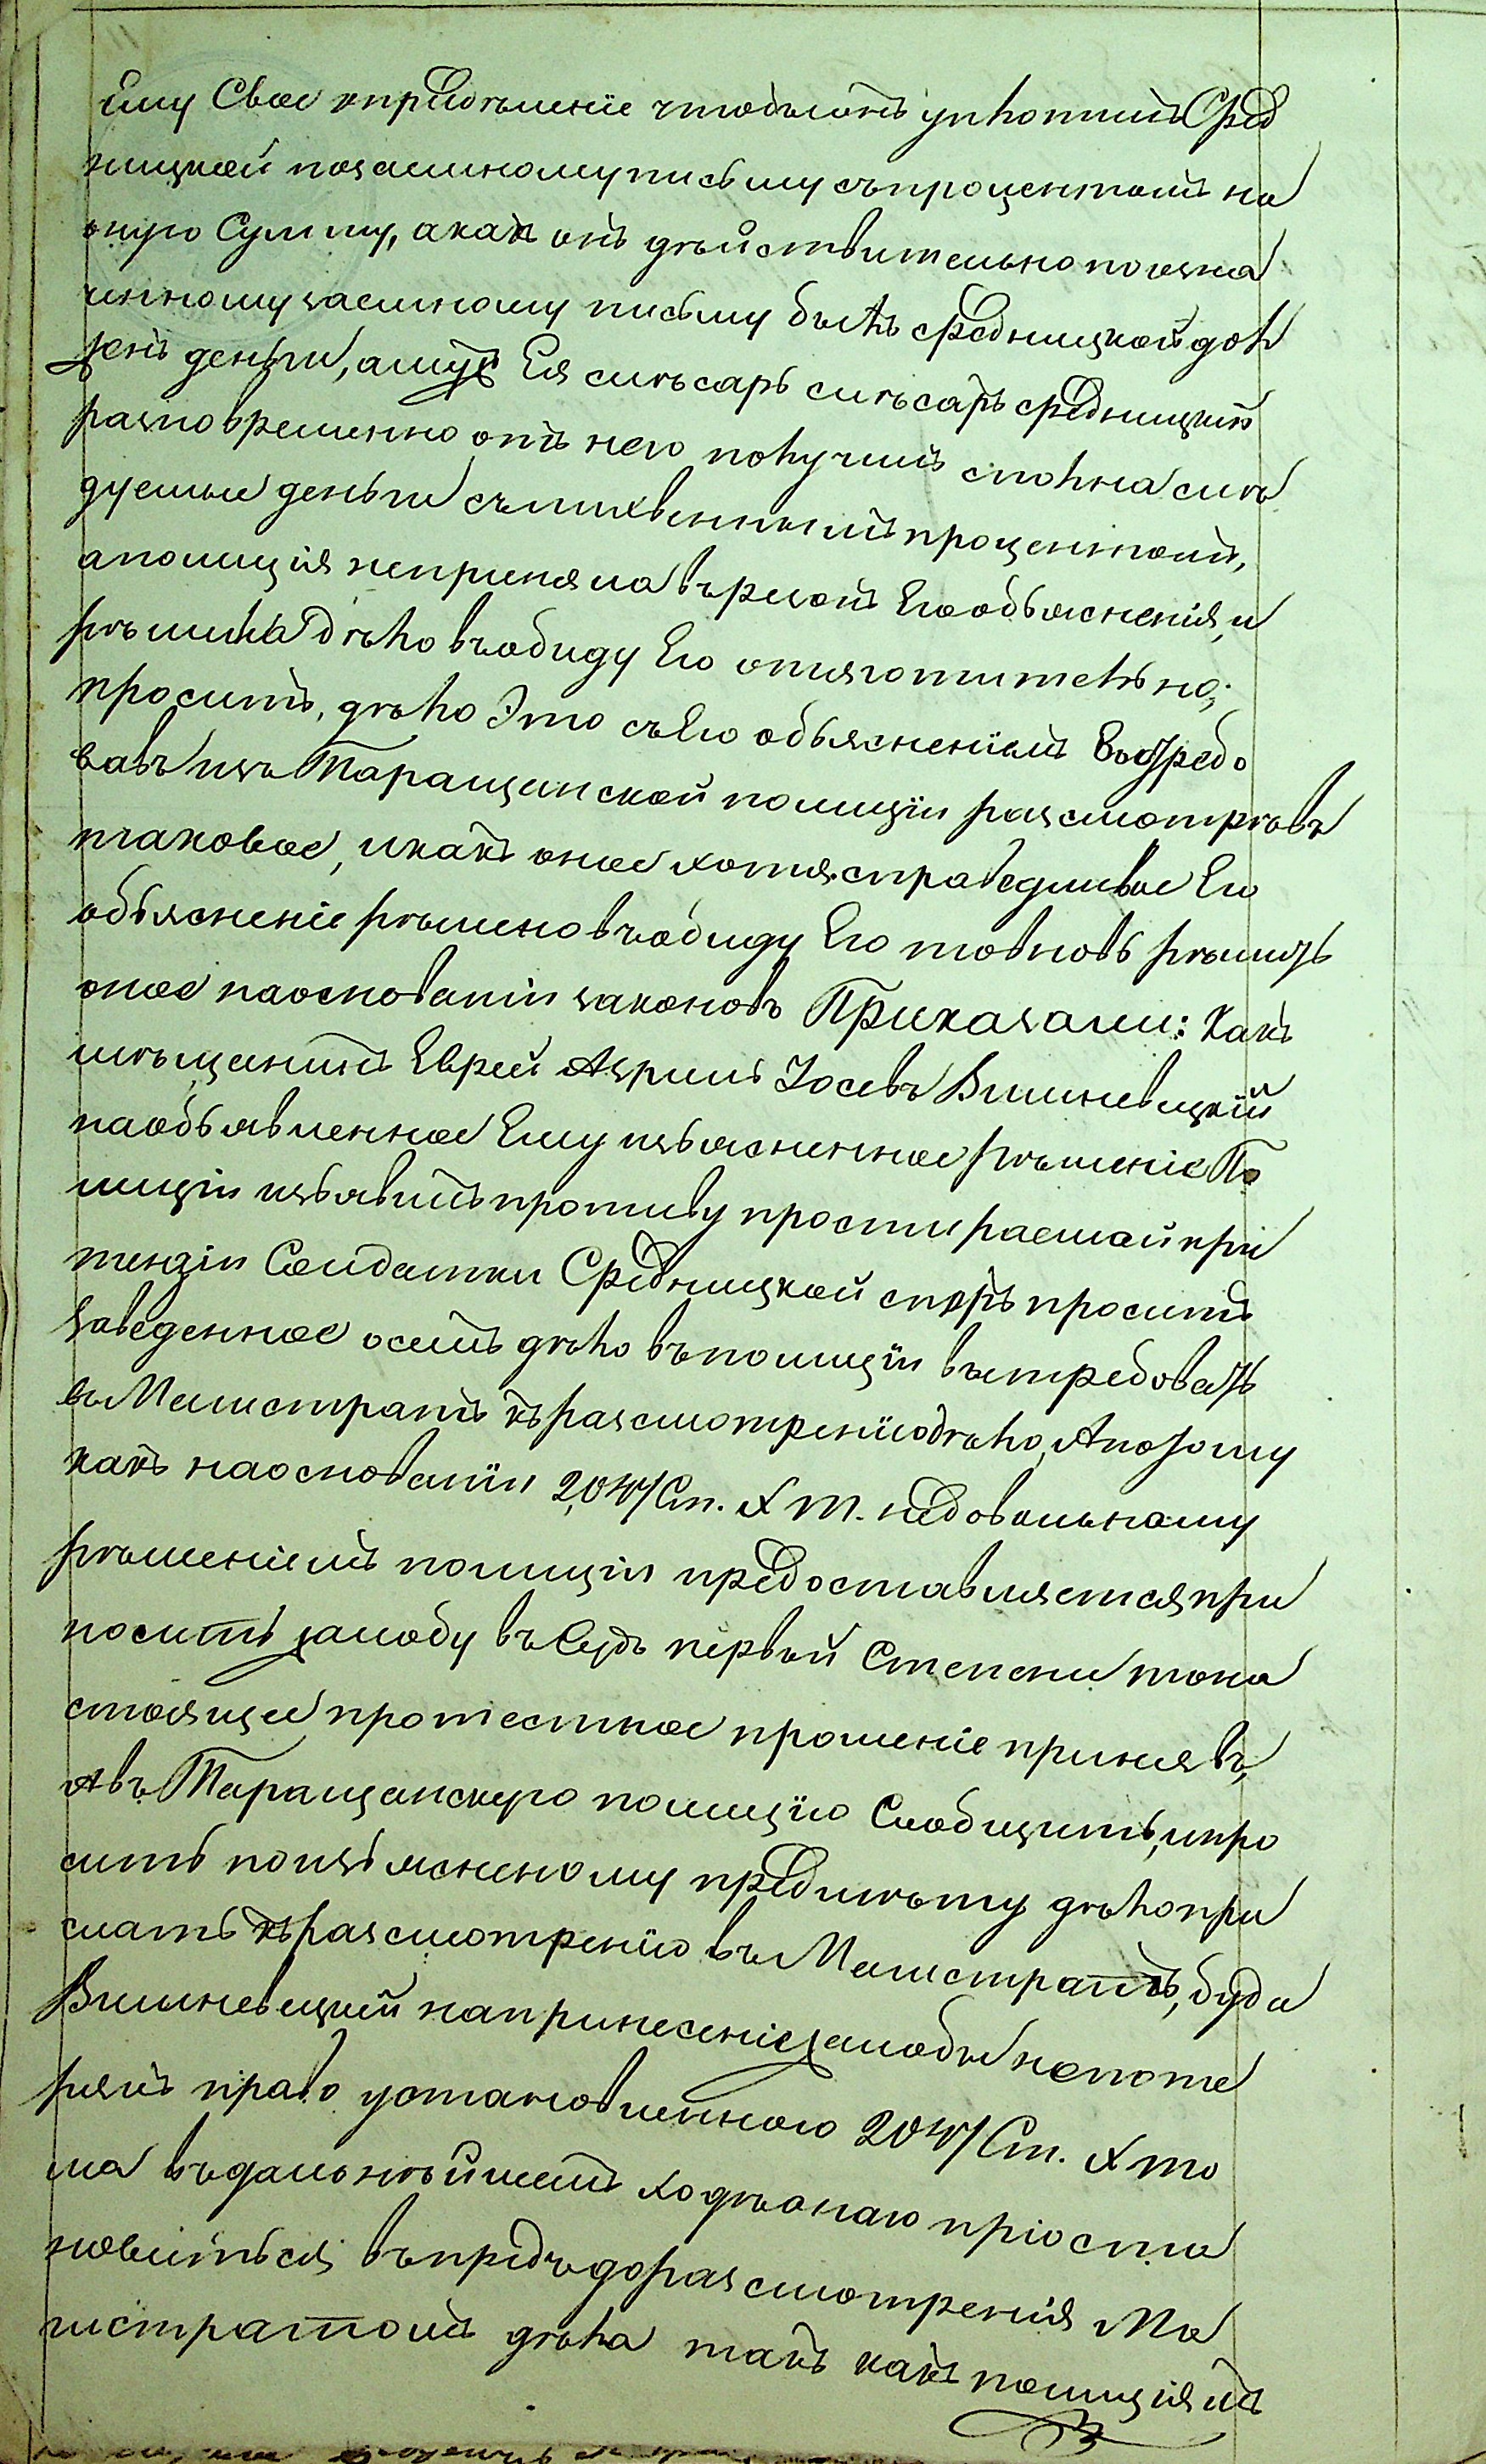 ему Свое опредѣленіе чтобы онъ уплотилъ Сред
ницкой позаемному письму съпроцентомъ на
оную Сумму, акакъ онъ дѣйствительно поозна
ченному заемному письму былъ средницкой дол
женъ деньги, амужъ Ея слѣсарь слѣсарь средницкій
разновременно отъ него получилъ сполна слѣ
дуемые деньги съ лихвеннымъ процентомъ,
аполиція неприняла върезонъ Его объясненія, и
рѣшила дѣло въобиду Его отяготительно;
проситъ, дѣло Это съЕго объясненіемъ вытребо
вавъ изъ Таращанской полиціи разсмотрѣвъ
таковое, икакъ оное хотя справедливое Его
объясненіе рѣшено въобиду Его товновь рѣшить
оное наосновании законовъ Приказали: Какъ
мѣщанинъ Еврей Азриль Іосевъ Вишневецкій
наобъявленное Ему изъясненное рѣшеніе По
лиціи изъявилъ противу простираемой пре
тензіи Солдатки Средницкой споръ проситъ
Заведенное осемъ дѣло въполиціи вытребовать
въ Магистратъ къ разсмотренію дѣло, Апотому
какъ наоснованіи 2,041/Ст. Х т. недовольному
рѣшеніемъ полиціи предоставляется при
носить жалобу въ Судъ первой Степени то на
стоящее протестное прошеніе принявъ,
Авъ Таращанскую полицію Сообщить, ипро
сить поизъясненому предмѣту дѣло при
слать къ разсмотренію въ Магистратъ, буде
Вишневецкій напринесеніе жалобы непоте
рялъ право установленного 2041/Ст. Х то
ма въдальнѣйшемъ ходѣ онаго пріоста
новиться въпредь до разсмотренія Ма
гистратомъ дѣла такъ какъ полиція изъ